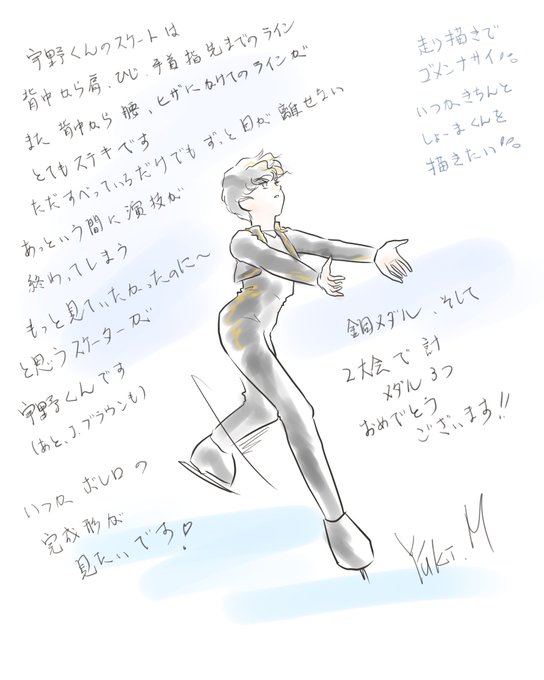 宇野くんのスケートは
背中から肩、ひじ、手首指先までのライン
また 背中から 腰、ヒザにかけてのラインが
とてもステキです
ただすべっているだけでも ずっと目が離せない
あっという間に演技が
終わってしまう
もっと見ていたかったのに〜
と思うスケーターが
宇野くんです
(あと、J.ブラウンも)
いつか ボレロ の
完成形が
見たいです!
走り描きで
ゴメンナサイ
いつかきちんと
しょーまくんを
描きたい
銅メダル、そして
2大会で 計
メダル 3つ
おめでとう
ございます!!
Yuki.M